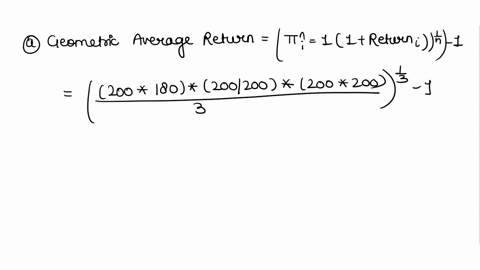 ⓐ Geometric Average Return = (πⁿᵢ = 1 (1 + Returnᵢ))^(1/n) - 1
= (((200 * 180) * (200/200) * (200 * 200)) / 3)^(1/3) - 1